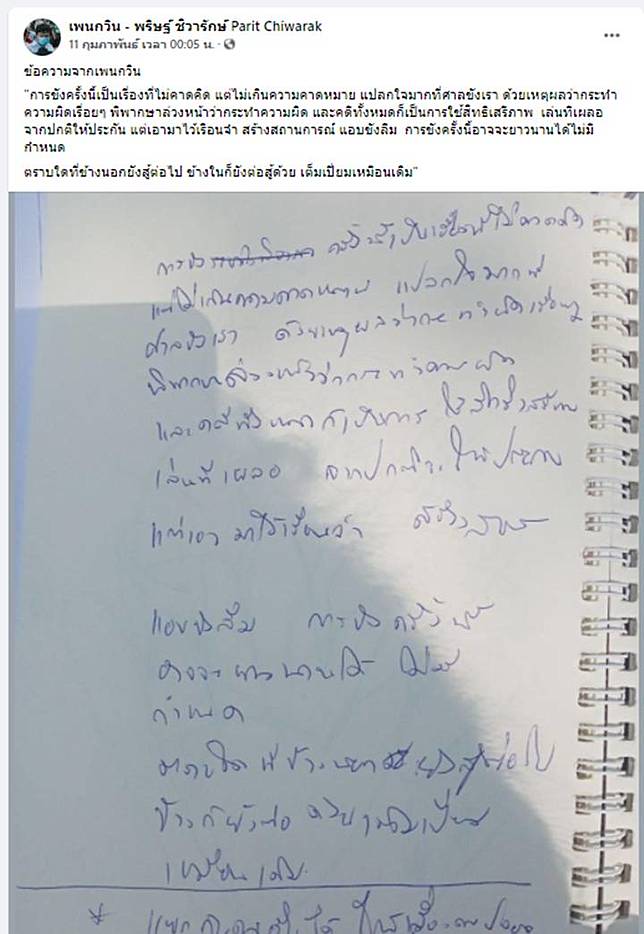 เพนกวิน - พริษฐ์ ชิวารักษ์ Parit Chiwarak
11 กุมภาพันธ์ เวลา 00:05 น. ·
ข้อความจากเพนกวิน
"การขังครั้งนี้เป็นเรื่องที่ไม่คาดคิด แต่ไม่เกินความคาดหมาย แปลกใจมากที่ศาลขังเรา ด้วยเหตุผลว่ากระทำ
ความผิดเรื่อยๆ พิพากษาล่วงหน้าว่ากระทำความผิด และคดีทั้งหมดก็เป็นการใช้สิทธิเสรีภาพ เล่นทีเผลอ
จากปกติให้ประกัน แต่เอามาไว้เรือนจำ สร้างสถานการณ์ แอบขังลืม การขังครั้งนี้อาจจะยาวนานได้ไม่มี
กำหนด
ตราบใดที่ข้างนอกยังสู้ต่อไป ข้างในก็ยังต่อสู้ด้วย เต็มเปี่ยมเหมือนเดิม"
การขัง ครั้งนี้เป็นเรื่องที่ไม่คาดคิด
แต่ไม่เกินความคาดหมาย แปลกใจมากที่
ศาลขังเรา ด้วยเหตุผลว่ากระทำผิดเรื่อยๆ
พิพากษาล่วงหน้าว่ากระทำความผิด
และคดีทั้งหมดก็เป็นการ ใช้สิทธิเสรีภาพ
เล่นทีเผลอ จากปกติจะให้ประกัน
แต่เอามาไว้เรือนจำ
แอบขังลืม การขังครั้งนี้
อาจจะยาวนานได้ ไม่มี
กำหนด
ตราบใดที่ข้างนอก ยังสู้ต่อไป
ข้างในก็ยังต่อ ด้วย เต็มเปี่ยม
เหมือนเดิม